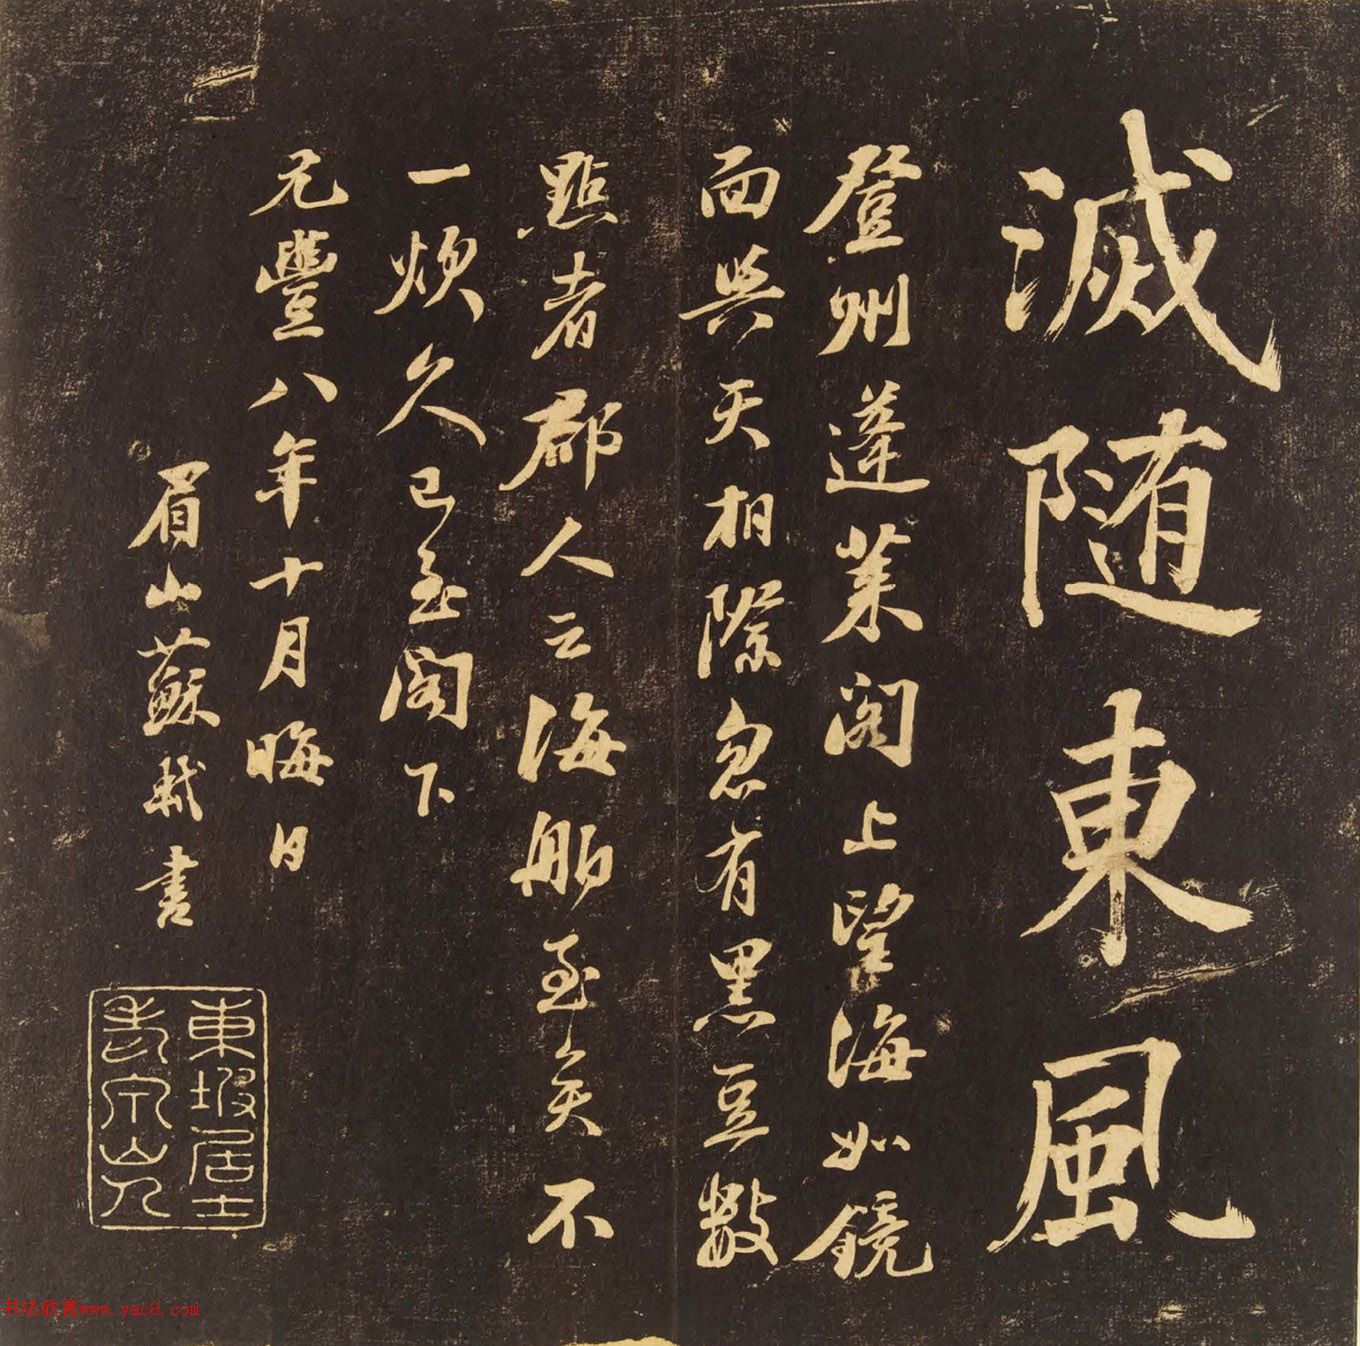 滅随東風
登州蓬莱阁上望海如鏡
面與天相際忽有黑豆數
點者郡人云海舶至矣不
一炊久已至阁下
元豐八年十月晦日
眉山蘇軾書
東坡居士
老泉山人
书法欣赏www.yac8.com